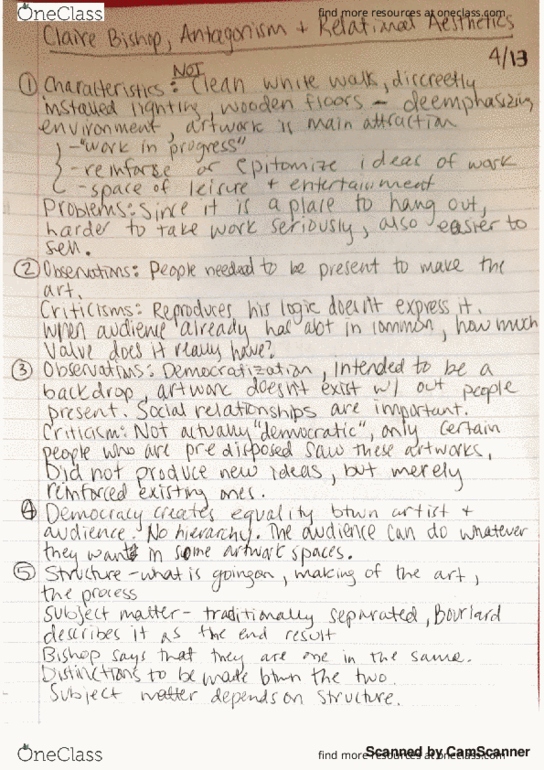 OneClass
find more resources at oneclass.com
Claire Bishop, Antagonism + Relational Aesthetics
4/13
NOT
① Characteristics: Clean white walls, discreetly
installed lighting, wooden floors - deemphasizing
environment, artwork is main attraction
- "work in progress"
- reinforse or epitomize ideas of work
- space of leisure + entertainment
Problems: Since it is a place to hang out,
harder to take work seriously, also easier to
sell.
② Observations: People needed to be present to make the
art.
Criticisms: Reproduces his logic doesn't express it.
When audience already has alot in common, how much
value does it really have?
③ Observations: Democratization, intended to be a
backdrop, artwork doesn't exist w/ out people
present. Social relationships are important.
Criticism: Not actually "democratic", only certain
people who are predisposed saw these artworks,
Did not produce new ideas, but merely
reinforced existing ones.
④ Democracy creates equality btwn artist +
audience. No hierarchy. The audience can do whatever
they want in some artwork spaces.
⑤ Structure - what is going on, making of the art,
the process
Subject matter - traditionally separated, Bourriard
describes it as the end result
Bishop says that they are one in the same.
Distinctions to be made btwn the two.
Subject matter depends on structure.
OneClass
find more resources at oneclass.com
Scanned by CamScanner